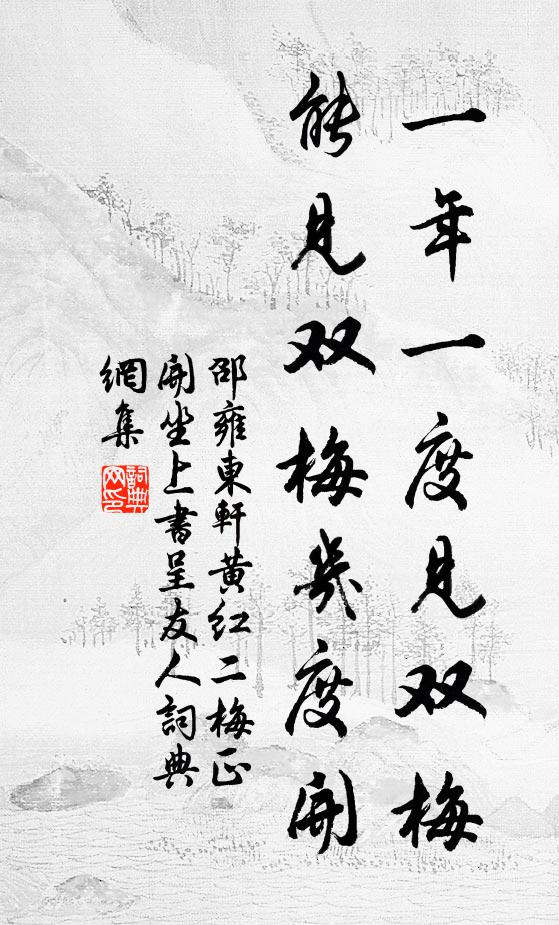 一年一度見双梅
能見双梅幾度開
邵雍東軒黄红二梅正
開坐上書呈友人詞典
網集
詞典
网印